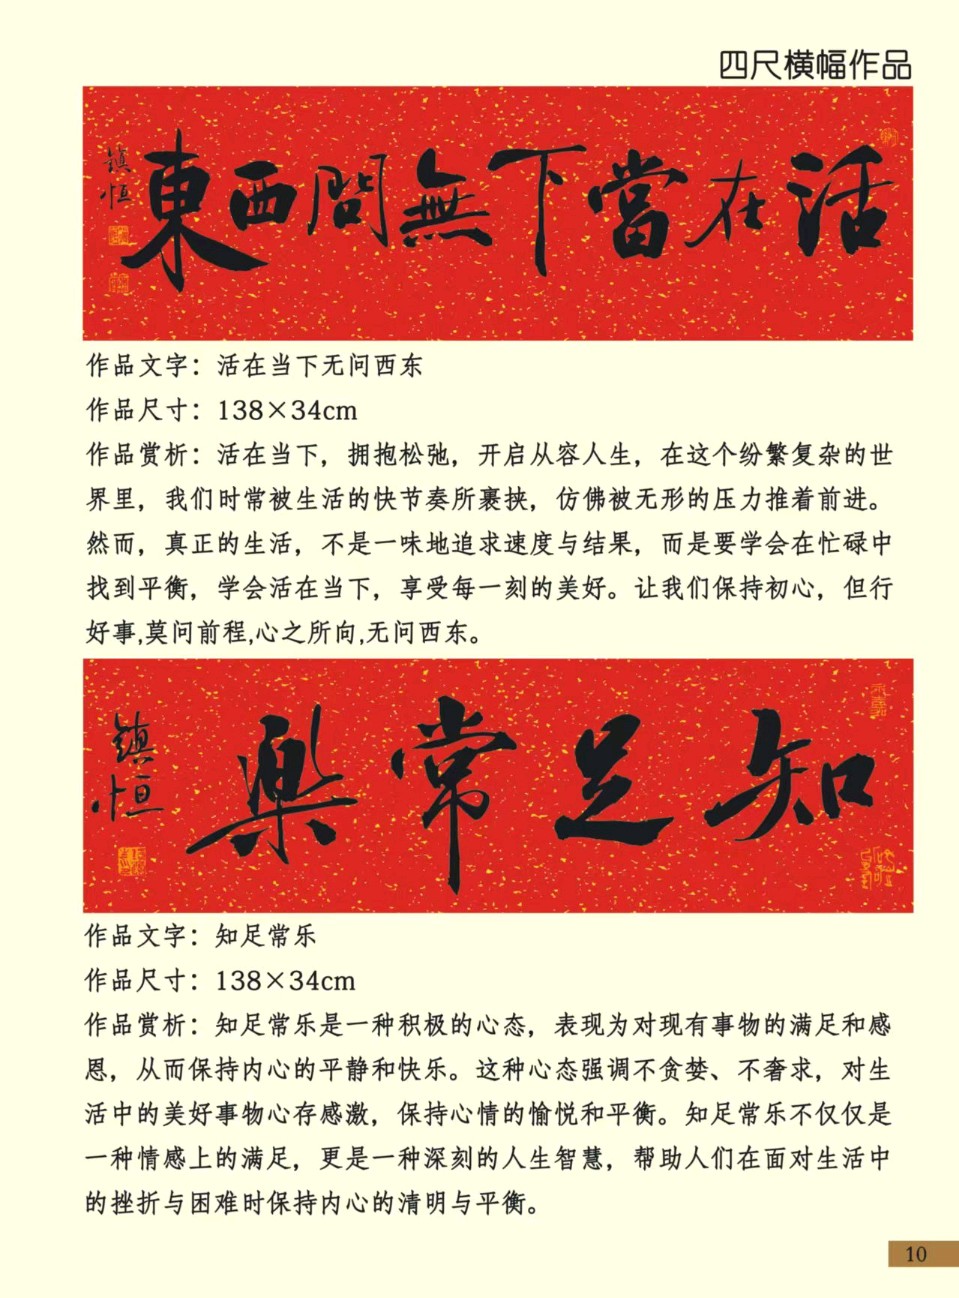 四尺横幅作品
活在當下無問西東
鎮恒
作品文字：活在当下无问西东
作品尺寸：138×34cm
作品赏析：活在当下，拥抱松弛，开启从容人生，在这个纷繁复杂的世
界里，我们时常被生活的快节奏所裹挟，仿佛被无形的压力推着前进。
然而，真正的生活，不是一味地追求速度与结果，而是要学会在忙碌中
找到平衡，学会活在当下，享受每一刻的美好。让我们保持初心，但行
好事,莫问前程,心之所向,无问西东。
知足常樂
鎮恒
作品文字：知足常乐
作品尺寸：138×34cm
作品赏析：知足常乐是一种积极的心态，表现为对现有事物的满足和感
恩，从而保持内心的平静和快乐。这种心态强调不贪婪、不奢求，对生
活中的美好事物心存感激，保持心情的愉悦和平衡。知足常乐不仅仅是
一种情感上的满足，更是一种深刻的人生智慧，帮助人们在面对生活中
的挫折与困难时保持内心的清明与平衡。
10